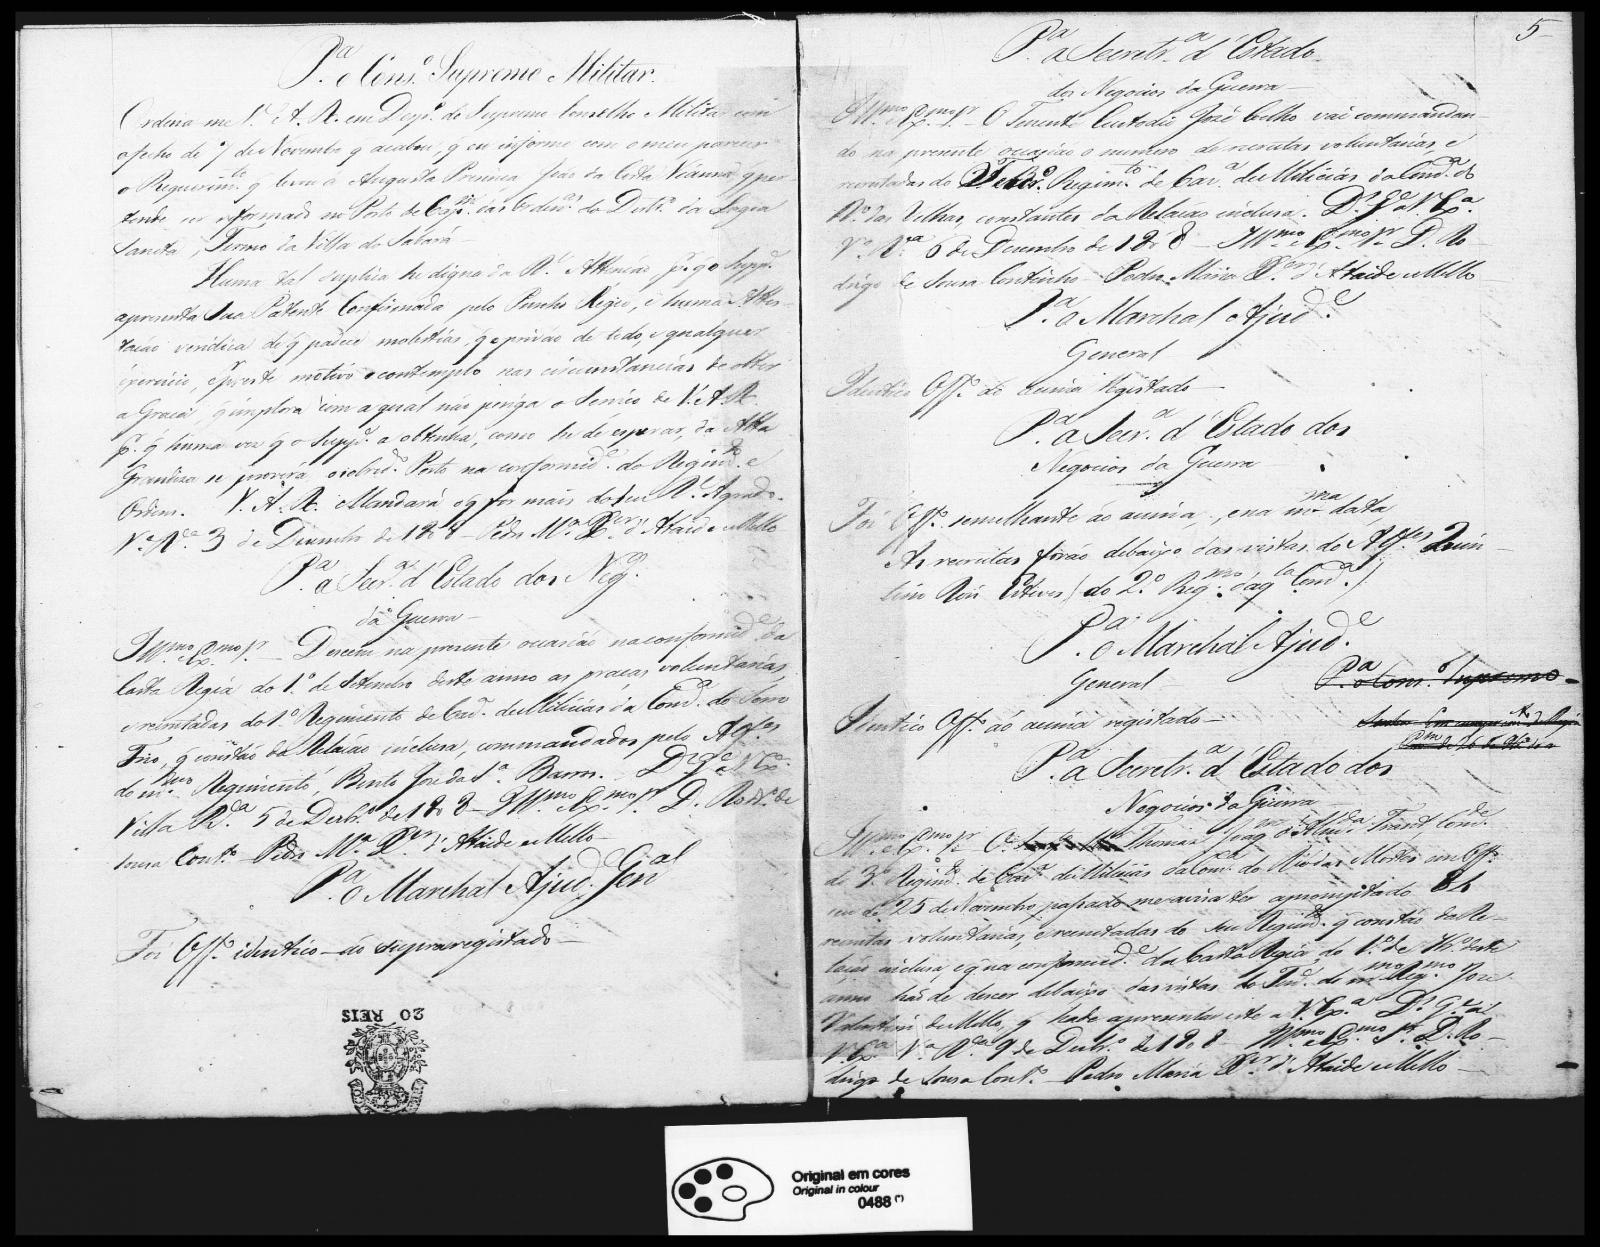 P.ª o Cons.º Supremo Militar.
Ordena-me V. A. R. em Desp.º do Supremo Conselho Militar com
o fecho de 7 de Novembro q acabou, q eu informe com o meu parecer
o Requerim.to q leva á Augusta Presença João da Costa Vianna, q per
tende ser reformado no Posto de Cap.m das Orden.ças do Distr.º da Lagoa
Santa, Termo da Villa do Sabará —
Huma tal suplica he digna da R.l Attenção p.r q o Supp.e
apresenta Sua Patente Confirmada pelo Punho Regio, e huma Attes-
tação veridica de q padece molestias, q o privão de todo, e qualquer
exercicio, e por este motivo o contemplo nas circunstancias de obter
a Graça, q implora com a qual não periga o Servico de V. A. R.
P.r q huma vez q o Supp.e a obtenha, como he de esperar, da Alta
Grandeza se proverá o sobred.º Posto na conformid.e do Regim.to e
Ordens. V. A. R. Mandará o q for mais do seu R.l Agrado.
V.ª R.ª 3 de Dezembro de 1808 — Pedro M.ª X.er d'Ataide e Mello
P.ª a Secr.ª d'Estado dos Neg.os
da Guerra —
Ill.mo e Ex.mo Sr. — Descem na presente occasião na conformid.e da
Carta Regia do 1.º de Setembro deste anno as praças voluntarias,
e recrutadas do 1.º Regimento de Cav.ª de Milicias da Com.ca do Serro
Frio, q constão da Relação incluza, commandados pelo Alferes
do m.mo Regimento, Bento Jose da S.ª Barros. D.s G.e a V. Ex.ª
Villa R.ª 5 de Dezbr.º de 1808 — Ill.mo e Ex.mo Sr. D. Rodr.º de
Sousa Cout.º — Pedro M.ª X.er d'Ataide e Mello —
P.ª o Marchal Ajud.e Gen.al
Foi Off.º identico ao supra registado —
20 REIS
5
P.ª a Secretr.ª d'Estado
dos Negocios da Guerra —
Ill.mo e Ex.mo Sr. O Tenente Custodio José Coelho vai commandan-
do na presente occasião o numero de recrutas voluntarias, e
recrutadas do Regim.to de Cav.ª de Milicias da Com.ca do
R.º das Velhas, constantes da Relação incluza. D.s G.e a V. Ex.ª
V.ª R.ª 6 de Dezembro de 1808 — Ill.mo e Ex.mo Sr. D. Ro-
drigo de Sousa Coutinho — Pedro Maria X.er d'Ataide e Mello
P.ª o Marchal Ajud.e
General
Identico Off.º ao acima registado —
P.ª a Secr.ª d'Estado dos
Negocios da Guerra —
Foi Off.º semelhante ao acima, e na m.ma data
As recrutas forão debaixo das vistas do Alferes
do 2.º Reg.mto daq.la Com.ca)
P.ª o Marchal Ajud.e
General —
P.ª o Cons.º Supremo
Identico Off.º ao acima registado —
P.ª a Secretr.ª d'Estado dos
Negocios da Guerra —
Ill.mo e Ex.mo Sr. O Thomaz Joaq.m d'Alm.da Trant Com.de
do 3.º Regim.to de Cav.ª de Milicias da Com.ca do Rio das Mortes em Off.º
seu de 25 de Novembro passado me avisa ter apromptado 81
recrutas voluntarias, e recrutadas do seu Regim.to q constão da Re-
lação incluza, e q na conformid.e da Carta Regia do 1.º de 7br.º deste
anno hão de descer debaixo das vistas do Ten.e do m.mo Reg.mto Jose
Valentim de Mello, q hade apresentar este a V. Ex.ª D.s G.e a
V. Ex.ª V.ª R.ª 9 de Dezbr.º de 1808 — Ill.mo e Ex.mo Sr. D. Ro-
drigo de Sousa Cout.º — Pedro Maria X.er d'Ataide e Mello —
Original em cores
Original in colour
0488 (*)